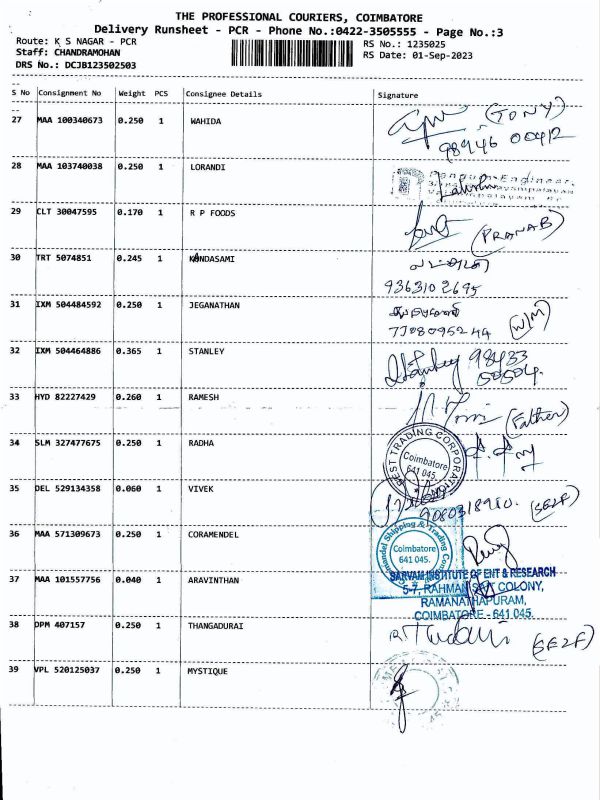 THE PROFESSIONAL COURIERS, COIMBATORE
Delivery Runsheet - PCR - Phone No.:0422-3505555 - Page No.:3
Route: K S NAGAR - PCR
RS No.: 1235025
Staff: CHANDRAMOHAN
RS Date: 01-Sep-2023
DRS No.: DCJB123502503
S No Consignment No Weight PCS Consignee Details Signature
27 MAA 100340673 0.250 1 WAHIDA (TONY)
98946 00412
28 MAA 103740038 0.250 1 LORANDI
29 CLT 30047595 0.170 1 R P FOODS (PRANAB)
30 TRT 5074851 0.245 1 KANDASAMI
9363102695
31 IXM 504484592 0.250 1 JEGANATHAN
7708095244 (W/M)
32 IXM 504464886 0.365 1 STANLEY Stanley 98433
50504.
33 HYD 82227429 0.260 1 RAMESH (Father)
34 SLM 327477675 0.250 1 RADHA
BEST TRADING CORPORATION
Coimbatore
641 045
35 DEL 529134358 0.060 1 VIVEK 9080318980. (SELF)
36 MAA 571309673 0.250 1 CORAMENDEL
Coramandel Shipping & Trading
Coimbatore
641 045.
37 MAA 101557756 0.040 1 ARAVINTHAN
SARVAM INSTITUTE OF ENT & RESEARCH
5-7, RAHMAN SAIT COLONY,
RAMANATHAPURAM,
COIMBATORE - 641 045.
38 DPM 407157 0.250 1 THANGADURAI (SELF)
39 VPL 520125037 0.250 1 MYSTIQUE